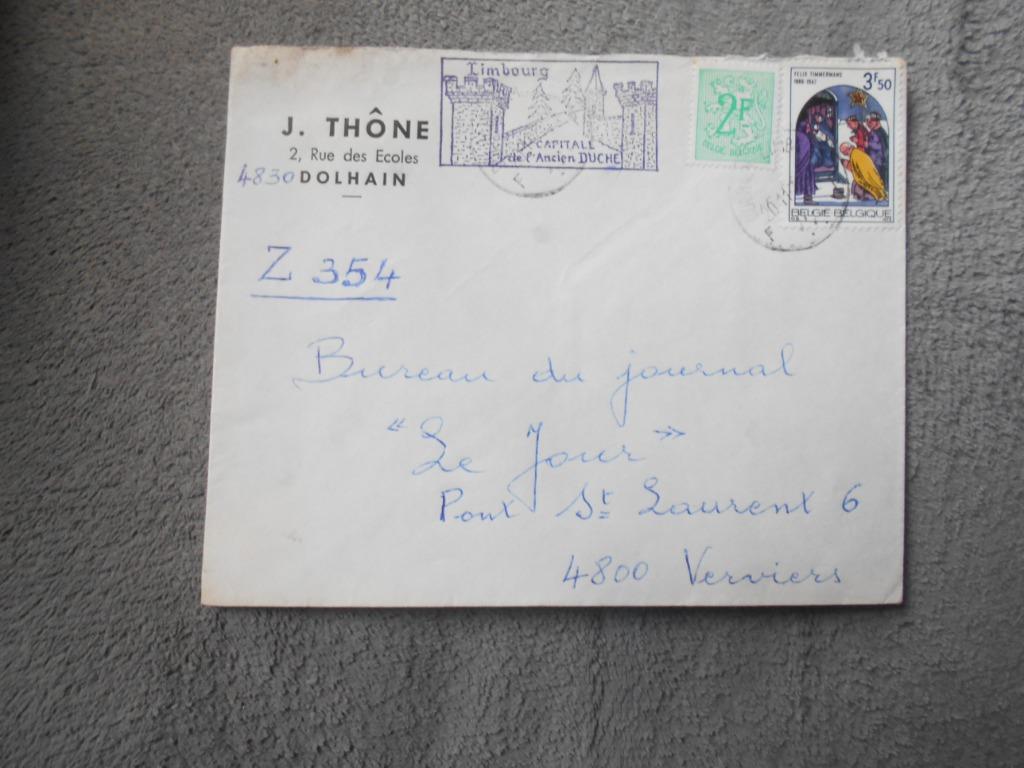 J. THÔNE
2, Rue des Ecoles
4830 DOLHAIN
Limbourg
CAPITALE
de l'Ancien DUCHE
2F
BELGIE BELGIQUE
FELIX TIMMERMANS
1886-1947
3F50
BELGIE BELGIQUE
Z 354
Bureau du journal
“Le Jour”
Pont St Laurent 6
4800 Verviers